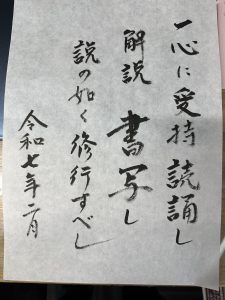 一心に受持読誦し
解説書写し
説の如く修行すべし
令和七年二月